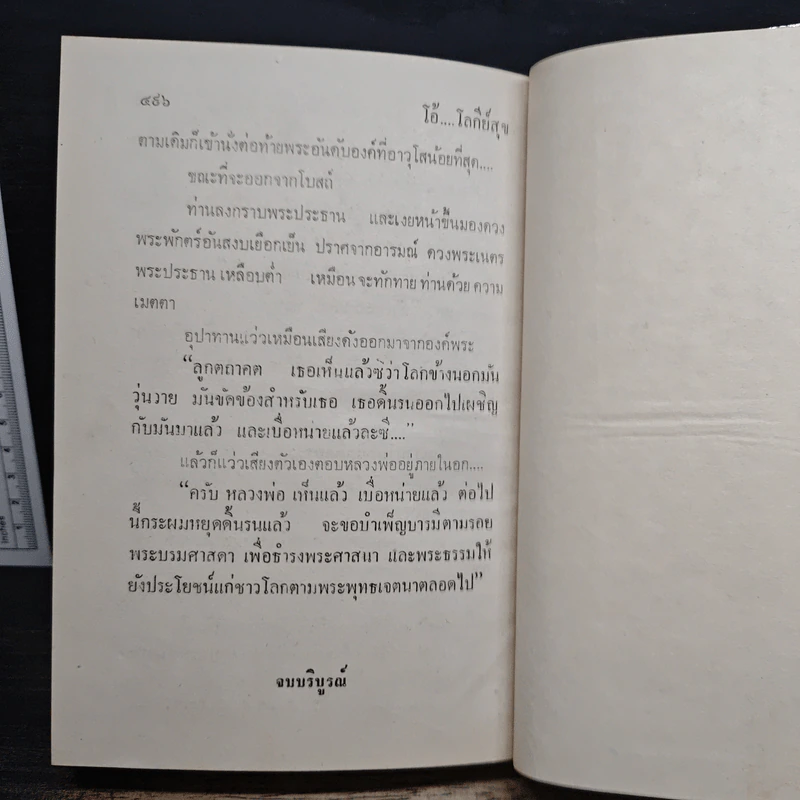 ๔๙๖
โอ้....โลกีย์สุข
ตามเดิมก็เข้านั่งต่อท้ายพระอันดับองค์ที่อาวุโสน้อยที่สุด....
ขณะที่จะออกจากโบสถ์
ท่านลงกราบพระประธาน และเงยหน้าขึ้นมองดวง
พระพักตร์อันสงบเยือกเย็น ปราศจากอารมณ์ ดวงพระเนตร
พระประธาน เหลือบต่ำ เหมือน จะทักทาย ท่านด้วย ความ
เมตตา
อุปาทานแว่วเหมือนเสียงดังออกมาจากองค์พระ
“ลูกตถาคต เธอเห็นแล้วซิว่าโลกข้างนอกมัน
วุ่นวาย มันขัดข้องสำหรับเธอ เธอดิ้นรนออกไปเผชิญ
กับมันมาแล้ว และเบื่อหน่ายแล้วละซี....”
แล้วก็แว่วเสียงตัวเองตอบหลวงพ่ออยู่ภายในอก....
“ครับ หลวงพ่อ เห็นแล้ว เบื่อหน่ายแล้ว ต่อไป
นี้กระผมหยุดดิ้นรนแล้ว จะขอบำเพ็ญบารมีตามรอย
พระบรมศาสดา เพื่อธำรงพระศาสนา และพระธรรมให้
ยังประโยชน์แก่ชาวโลกตามพระพุทธเจตนาตลอดไป”
จบบริบูรณ์